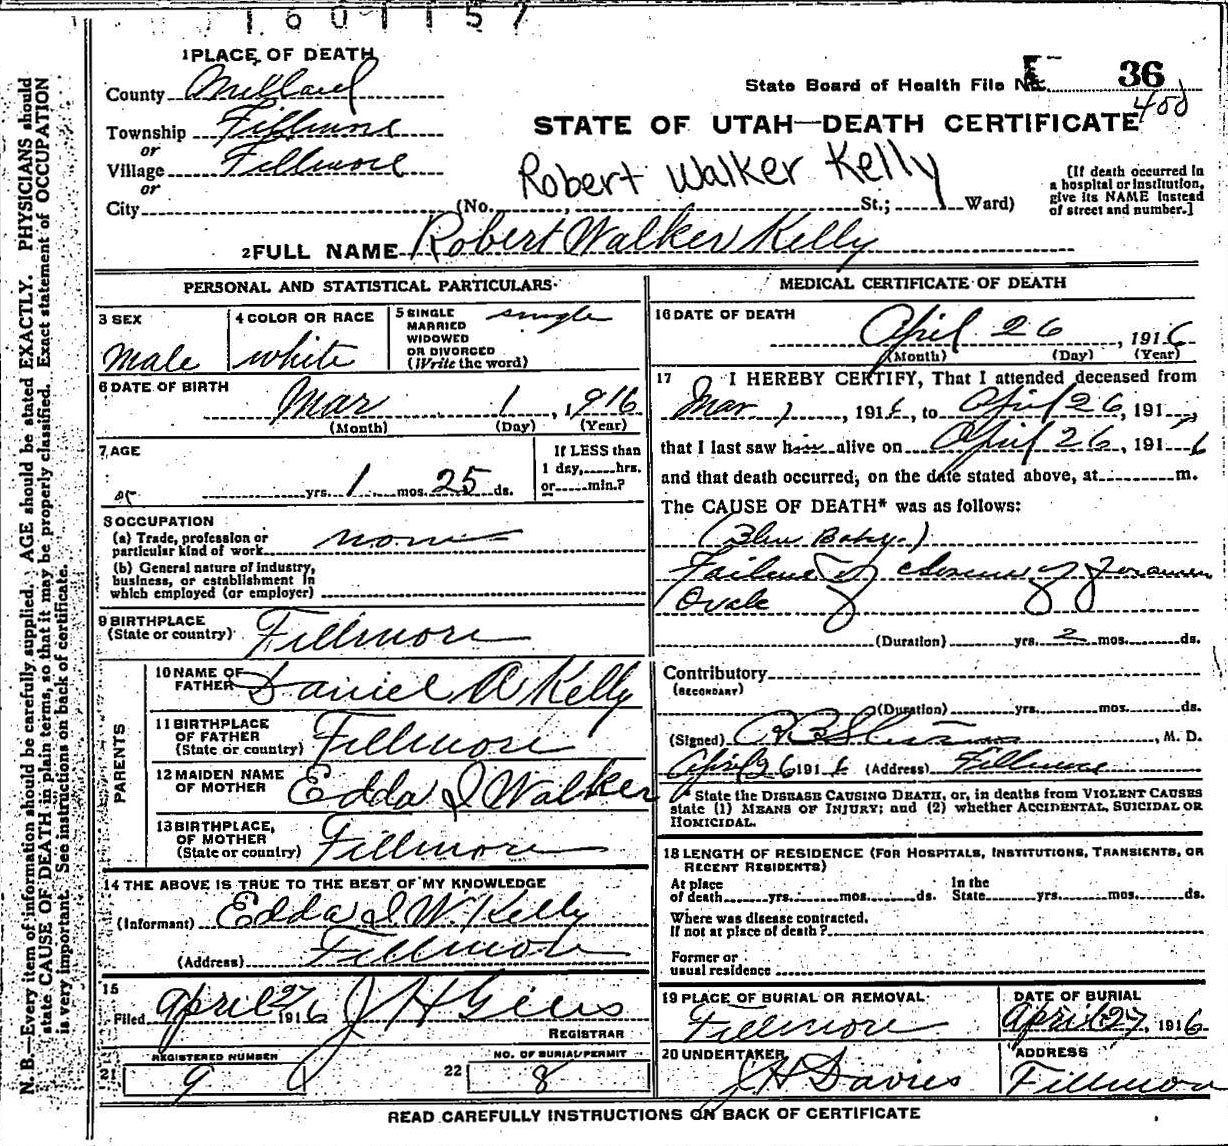 1601157
1 PLACE OF DEATH
County Millard
State Board of Health File No. 36
400
Township Fillmore
STATE OF UTAH—DEATH CERTIFICATE
or
Village Fillmore
or
Robert Walker Kelly
[If death occurred in
a hospital or institution,
give its NAME instead
of street and number.]
City (No. , St.; Ward)
2 FULL NAME Robert Walker Kelly
PERSONAL AND STATISTICAL PARTICULARS
3 SEX
Male
4 COLOR OR RACE
white
5 SINGLE
MARRIED
WIDOWED
OR DIVORCED
(Write the word)
single
6 DATE OF BIRTH
Mar 1, 1916
(Month) (Day) (Year)
7 AGE
yrs. 1 mos. 25 ds.
If LESS than
1 day, hrs.
or min.?
8 OCCUPATION
(a) Trade, profession or
particular kind of work none
(b) General nature of industry,
business, or establishment in
which employed (or employer)
9 BIRTHPLACE
(State or country) Fillmore
PARENTS
10 NAME OF
FATHER Daniel A Kelly
11 BIRTHPLACE
OF FATHER
(State or country) Fillmore
12 MAIDEN NAME
OF MOTHER Edda I Walker
13 BIRTHPLACE,
OF MOTHER
(State or country) Fillmore
14 THE ABOVE IS TRUE TO THE BEST OF MY KNOWLEDGE
(Informant) Edda I W. Kelly
(Address) Fillmore
15
Filed April 27 1916 J H Giles
REGISTRAR
REGISTERED NUMBER
21 9
NO. OF BURIAL PERMIT
22 8
MEDICAL CERTIFICATE OF DEATH
16 DATE OF DEATH
April 26, 1916
(Month) (Day) (Year)
17 I HEREBY CERTIFY, That I attended deceased from
Mar 1, 1916, to April 26, 191
that I last saw him alive on April 26, 1916
and that death occurred, on the date stated above, at m.
The CAUSE OF DEATH* was as follows:
(Blue Baby.)
Failure of closure of Foramen
Ovale
(Duration) yrs. 2 mos. ds.
Contributory
(SECONDARY)
(Duration) yrs. mos. ds.
(Signed) , M. D.
April 26 1916 (Address) Fillmore
* State the DISEASE CAUSING DEATH, or, in deaths from VIOLENT CAUSES
state (1) MEANS OF INJURY; and (2) whether ACCIDENTAL, SUICIDAL OR
HOMICIDAL.
18 LENGTH OF RESIDENCE (FOR HOSPITALS, INSTITUTIONS, TRANSIENTS, OR
RECENT RESIDENTS)
At place
of death yrs. mos. ds.
In the
State yrs. mos. ds.
Where was disease contracted.
If not at place of death?
Former or
usual residence
19 PLACE OF BURIAL OR REMOVAL
Fillmore
DATE OF BURIAL
April 27, 1916
20 UNDERTAKER
J H Davies
ADDRESS
Fillmore
READ CAREFULLY INSTRUCTIONS ON BACK OF CERTIFICATE
N. B.—Every item of information should be carefully supplied. AGE should be stated EXACTLY. PHYSICIANS should
state CAUSE OF DEATH in plain terms, so that it may be properly classified. Exact statement of OCCUPATION
is very important. See instructions on back of certificate.